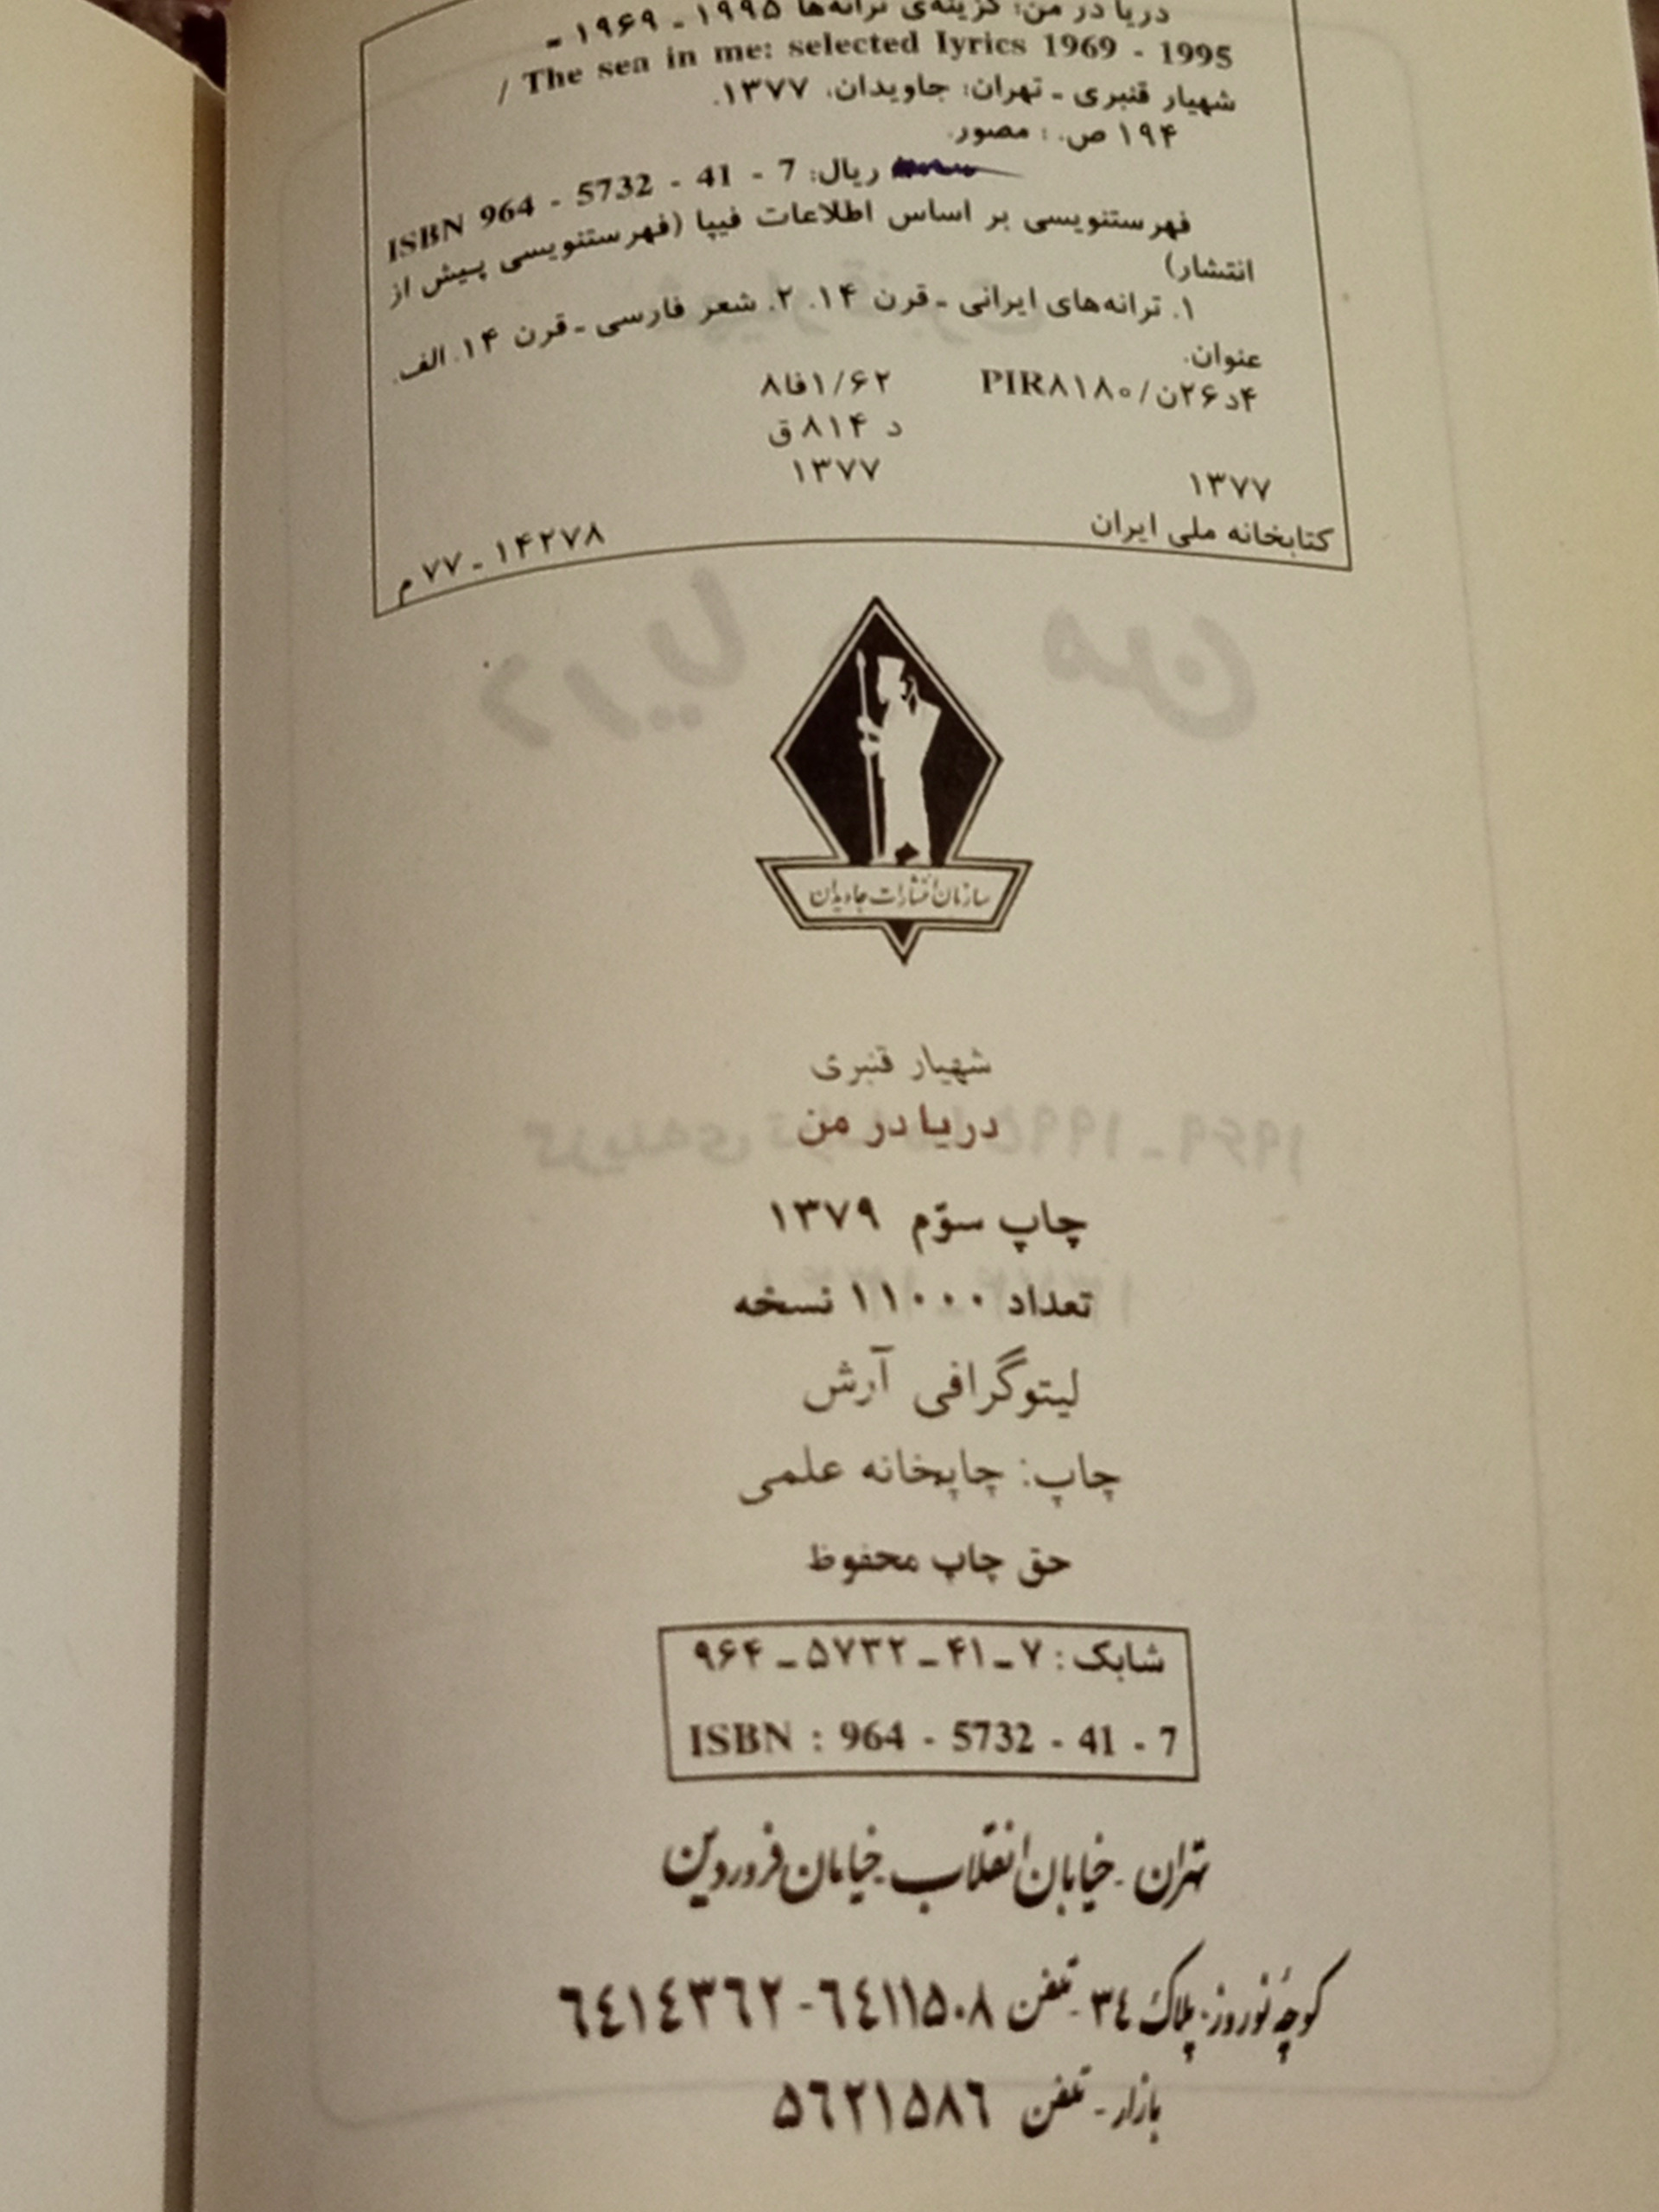 دریا در من: گزینه‌ی ترانه‌ها ۱۹۹۵ ـ ۱۹۶۹ ـ
The sea in me: selected lyrics 1969 - 1995 /
شهیار قنبری ـ تهران: جاویدان، ۱۳۷۷.
۱۹۴ ص. : مصور.
ریال: ISBN 964 - 5732 - 41 - 7
فهرستنویسی بر اساس اطلاعات فیپا (فهرستنویسی پیش از
انتشار)
۱. ترانه‌های ایرانی ـ قرن ۱۴. ۲. شعر فارسی ـ قرن ۱۴. الف.
عنوان.
۴د۲۶ن/PIR۸۱۸۰ ۸فا۱/۶۲
د ۸۱۴ ق
۱۳۷۷ ۱۳۷۷
کتابخانه ملی ایران ۱۴۲۷۸ ـ ۷۷ م
سازمان انتشارات جاویدان
شهیار قنبری
دریا در من
چاپ سوّم ۱۳۷۹
تعداد ۱۱۰۰۰ نسخه
لیتوگرافی آرش
چاپ: چاپخانه علمی
حق چاپ محفوظ
شابک : ۷ ـ ۴۱ ـ ۵۷۳۲ ـ ۹۶۴
ISBN : 964 - 5732 - 41 - 7
تهران - خیابان انقلاب - خیابان فروردین
کوچه نوروز - پلاک ۳٤ - تلفن ٦٤۱۱۵۰۸ - ٦٤۱٤۳٦۲
بازار - تلفن ۵٦۲۱۵۸٦